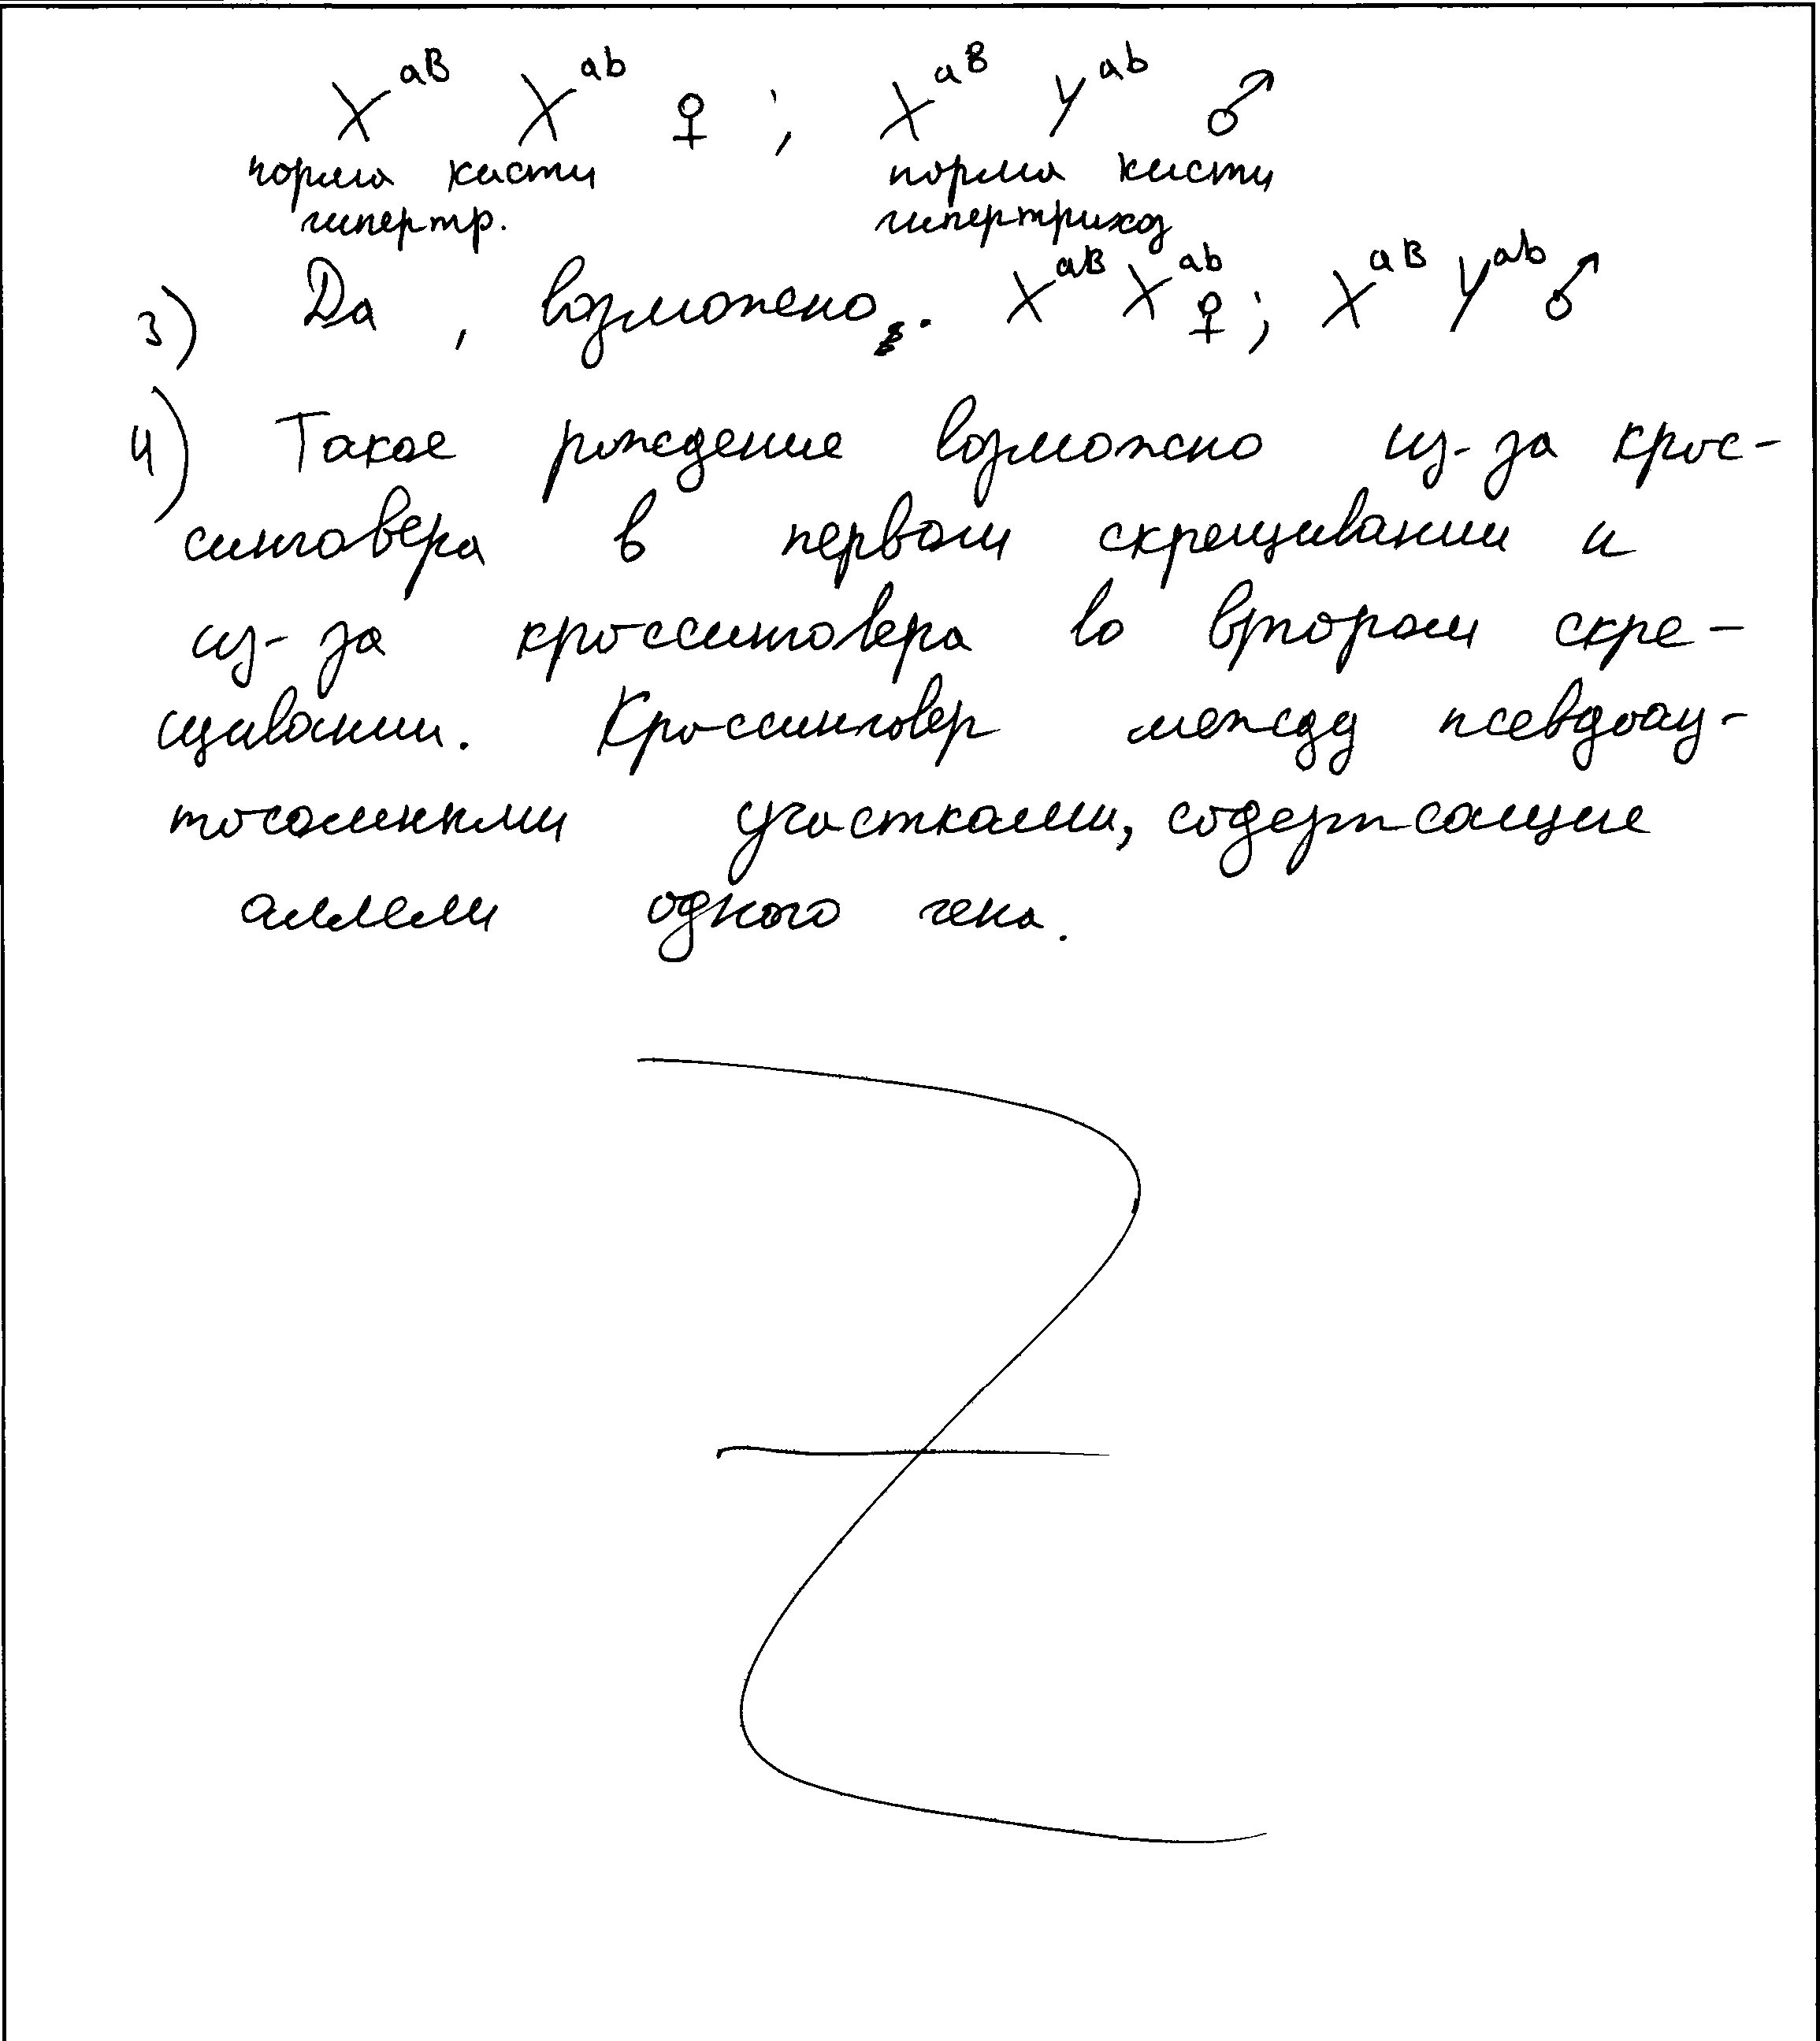 X^aB X^ab ♀ ; X^aB Y^ab ♂
норма кисти норма кисти
гипертр. гипертрихоз
3) Да , возможно. X^aB X^ab ♀; X^aB Y^ab ♂
4) Такое рождение возможно из-за крос-
синговера в первом скрещивании и
из-за кроссинговера во втором скре-
щивании. Кроссинговер между псевдоау-
тосомными участками, содержащие
аллели одного гена.